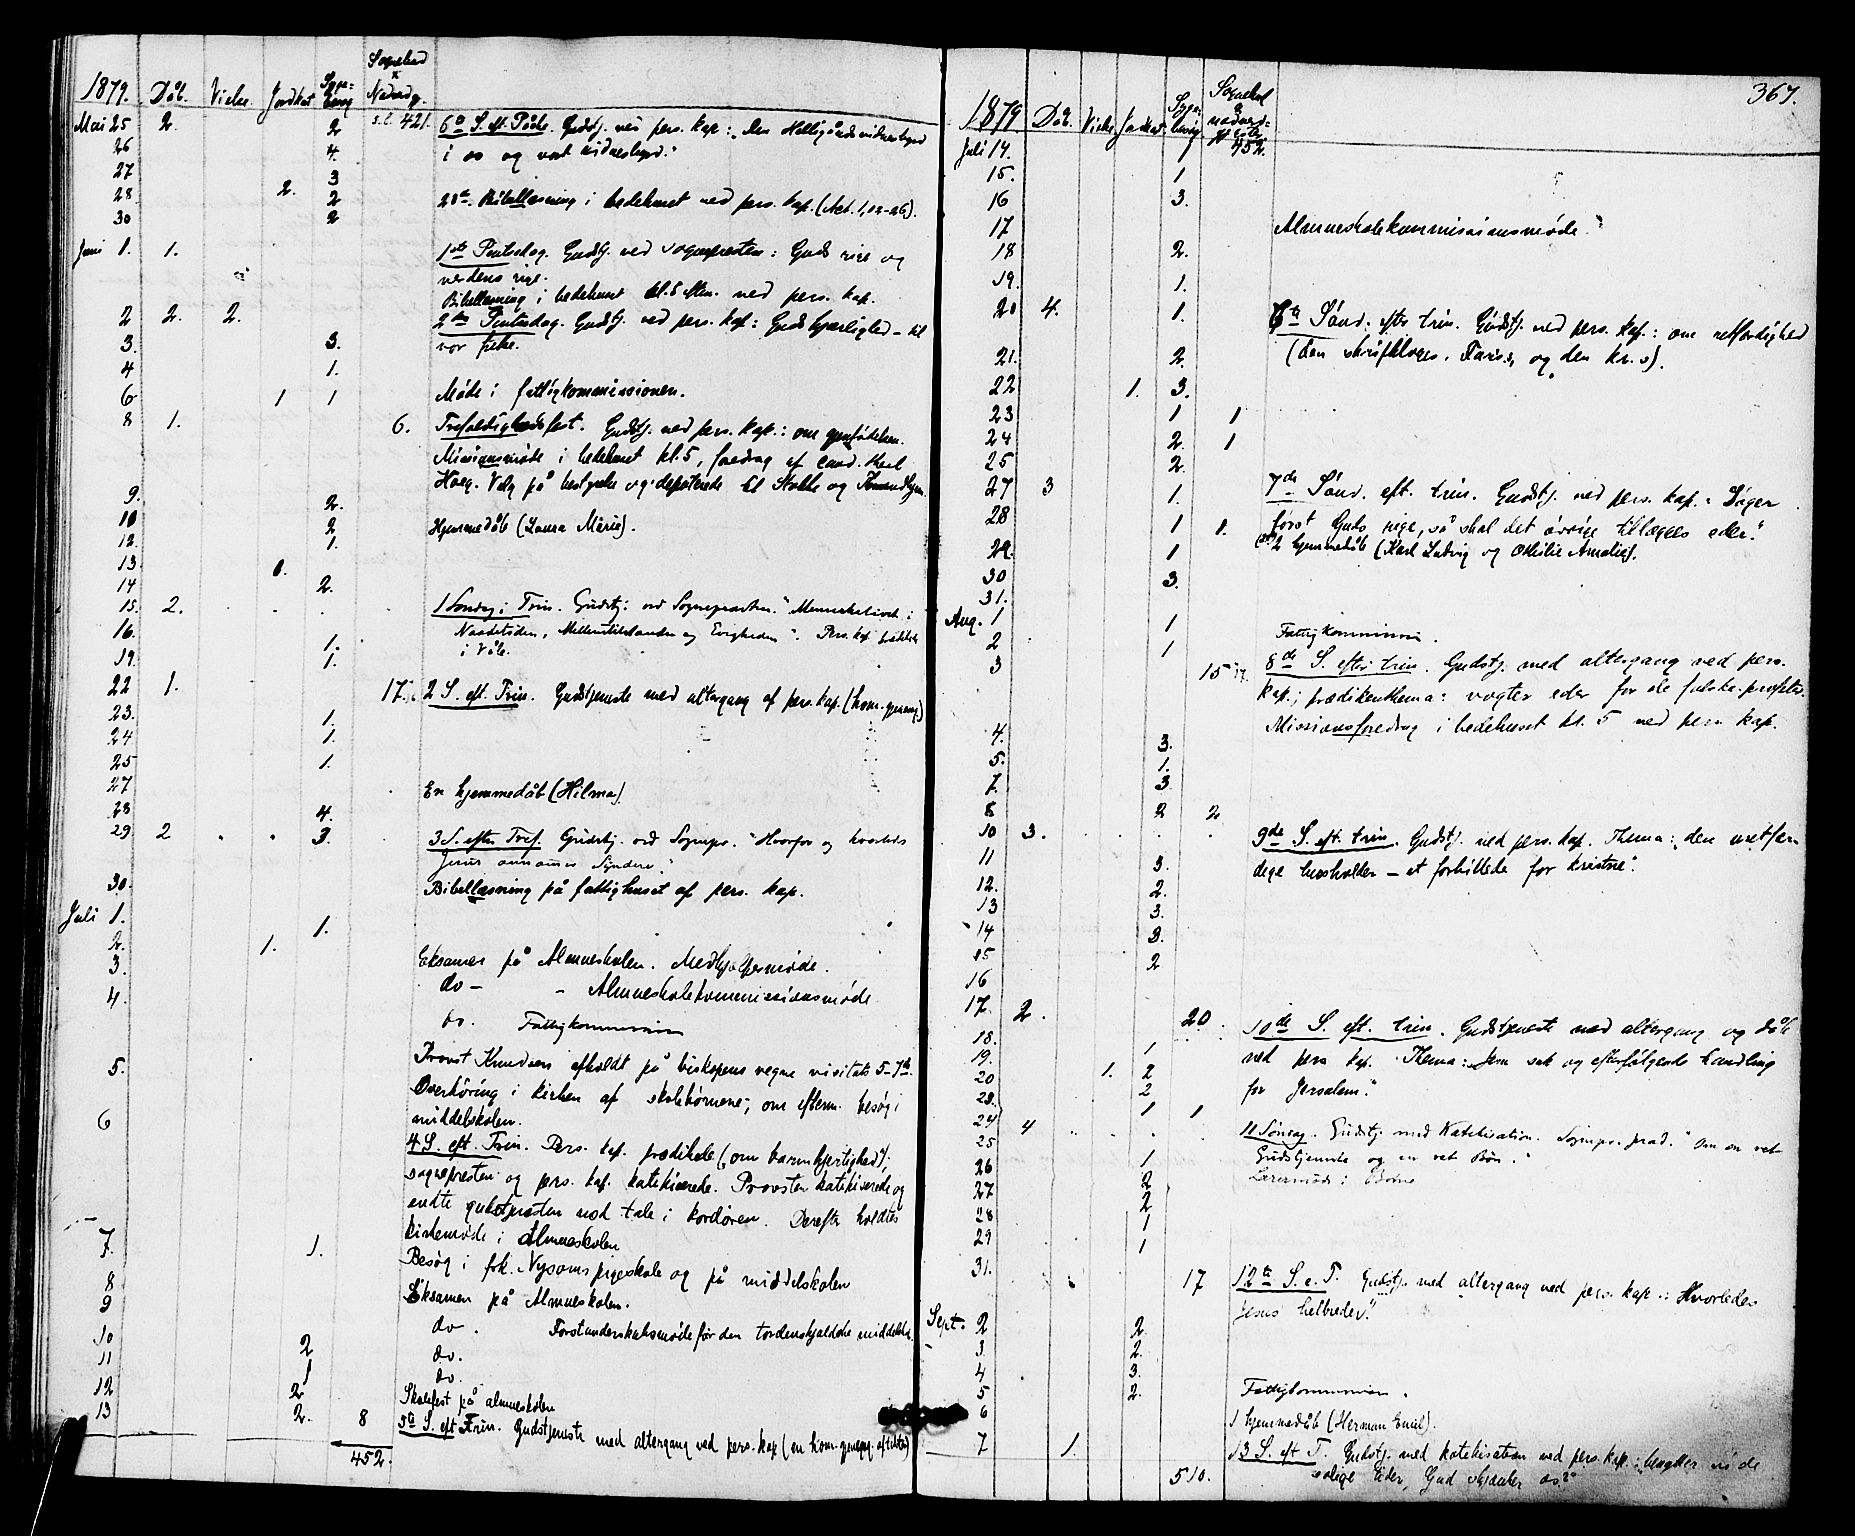 367.
1879. Dåb. Vielse. Jordkast Syge- besøg Sognebud x Nadvdg.
Mai 25 2. 2 421. 6te S. eft. Påske. Gudstj. ved pers. kap: "Den Helligånds vidnesbyrd
26 4. i os og vort vidnesbyrd."
27 3
28 2. 2 28de. Bibellæsning i bedehuset ved pers. kap. (Act. 1,12-26).
30 2
Juni 1. 1. 1ste Pintsedag. Gudstj. ved sognepresten: Guds rige og
verdens rige.
Bibellæsning i bedehuset kl. 5 eftm. ved pers. kap.
2 2. 2. 2den Pintsedag. Gudstj. ved pers. kap: Guds kjærlighed – til
3. 3. vor frelse.
4 1.
6 1 1 Møde i fattigkommissionen.
8 1. 6. Trefoldighedsfest. Gudstj. ved pers. kap.: om gjenfødelsen.
Missionsmøde i bedehuset kl. 5, foredrag af cand. Karl
Hoeg. Valg på bestyrelse og deputerede til Stokke og
9. 2.
10 2 Hjemmedåb (Laura Marie).
12. 1.
13.
14 2.
15. 2. 1 Søndag i Trin. Gudstj. ved Sognepræsten. "Menneskelivet i
16. Naadetiden, Mellemtilstanden og Evigheden". Pers. kap.
1. i Våle.
19. 1.
22 1. 17. 2 S. eft. Trin. Gudstjeneste med altergang af pers. kap.
23. 1.
24 1.
25 1.
27 En hjemmedåb (Hilma).
28 4.
29 2 3. 3 S. efter Tref. Gudstj. ved Sognepr. "Hvorfor og hvorledes
Jesus annammer Syndere."
30. Bibellæsning på fattighuset af pers. kap.
Juli 1. 1.
2. 1. Eksamen på Almueskolen. Medhjælpermøde.
3. do – – Almueskolekommissionsmøde
4. do. Fattigkommission
5. Provst Knudsen afholdt på biskopens vegne visitats 5-7de.
Overhøring i kirken af skolebørnene, om efterm. besøg i
6 middelskolen.
4 S. eft. Trin. Pers. kap. prædikede ("om barmhjertighed");
sognepresten og pers. kap. katekiserede. Provsten katekiserede og
endte gudstjenesten med tale i kordøren. Derefter holdtes
kirkemøde i Almueskolen
7. 1. Besøg i frk. Nysoms pigeskole og på middelskolen
8 Eksamen på Almueskolen.
9 do. Forstanderskabsmøde for den tordenskjoldske middelsk.
10 2 do.
11 1 do.
12 2 Skolefest på almueskolen
13 2. 8 5te S. eft Trin. Gudstjeneste med altergang ved pers. kap
452.
1879 Dåb. Vielse Jordkast Syge- besøg Sognebud & nadverd-
Juli 14. 1 452.
15. 1
16 3.
17 Almueskolekommissionsmøde.
18 2.
19. 1.
20 4. 1. 6te Sønd. efter trin. Gudstj. ved pers. kap.: om retfærdighed
21. 2. (den skriftkloges, og den kr.s).
22 1. 3.
23 1 1
24 2. 1
25 2.
27 3 1. 7de Sønd. eft. trin. Gudstj. ved pers. kap. "Søger
28 1 1. først Guds rige, så skal det øvrige tillægges eder."
29. 1 2 hjemmedåb (Karl Ludvig og Othilie Amalie).
30 3.
31.
Aug. 1 1 Fattigkommission.
2 1
3 15 8de S. efter trin. Gudstj. med altergang ved pers.
kap.; prædikenthema: vogter eder for de falske profeter.
Missionsforedrag i bedehuset kl. 5 ved pers. kap.
4. 3.
5. 1.
7. 3
8 2 2
10 3. 9de S. eft. trin. Gudstj. ved pers. kap. Thema: "den uretfær-
11 3. dige husholder – et forbillede for kristne".
12. 2.
13 3.
14 3.
15 2
16
17. 2. 20 10de S. eft. trin. Gudstjeneste med altergang og dåb
18. 1 ved pers kap. Thema: "Jesu suk og efterfølgende handling
19. 1. 2
20 2 for Jerusalem."
23. 1 1
24 4 11 Søndag. Gudstj. med Katekisation. Sognepr. præd. "Om en ret
25 Gudstjeneste og en ret Bøn."
26 1 Lærermøde i
27 2
28 2
29 1
1
31. 17 12te S. e. T. Gudstj. med altergang ved pers. kap.: "Hvorledes
Jesus helbreder."
Sept. 2 2.
3. 2.
4 3.
5 2. Fattigkommission.
6 1 hjemmedåb (Herman Emil).
7 1. 13 S. eft T. Gudstj. med katekisation ved pers. kap.: "benytter vi de
510. salige tider, Gud skjænker os?"